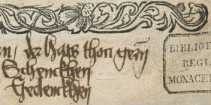 Ir habts thon gern
Schenckhen
Gedenckhen
BIBLIOTH
REGIA
MONACEN